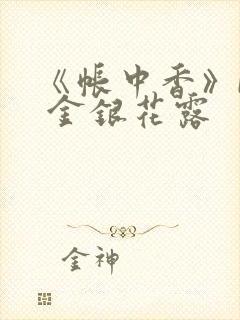 《帐中香》
金银花露
金神